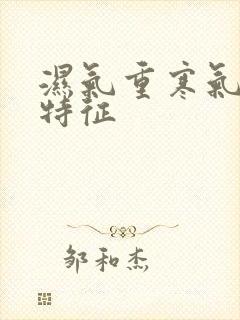 濕氣重寒氣
特征
邹和杰